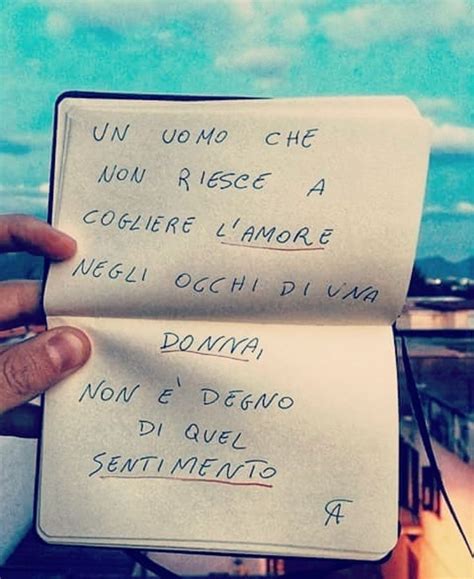 UN UOMO CHE
NON RIESCE A
COGLIERE L'AMORE
NEGLI OCCHI DI UNA
DONNA,
NON È DEGNO
DI QUEL
SENTIMENTO